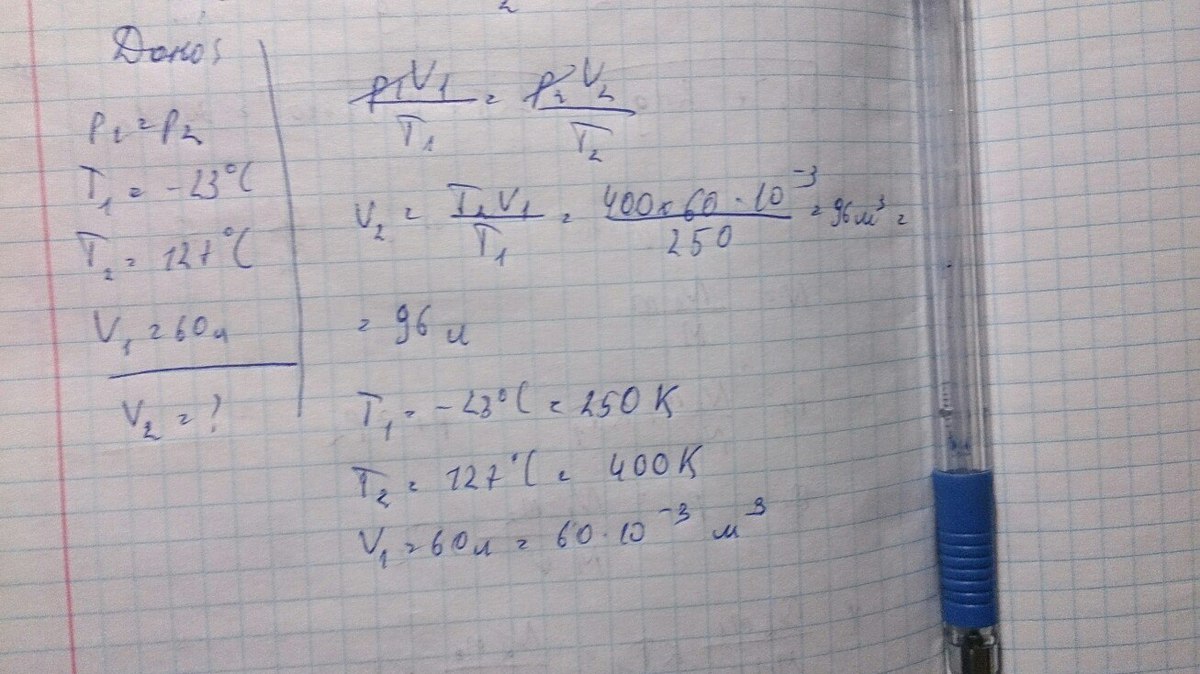 Дано:
P₁ = P₂
T₁ = -23°C
T₂ = 127°C
V₁ = 60 л
V₂ = ?
P₁V₁/T₁ = P₂V₂/T₂
V₂ = T₂V₁/T₁ = 400×60·10⁻³/250 = 96 м³ =
= 96 л
T₁ = -23°C = 250 K
T₂ = 127°C = 400 K
V₁ = 60 л = 60·10⁻³ м³